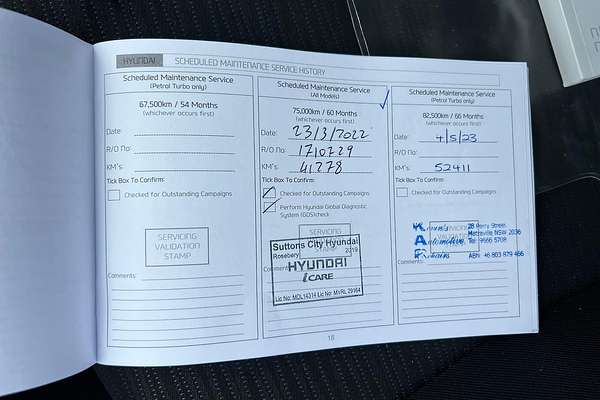 HYUNDAI SCHEDULED MAINTENANCE SERVICE HISTORY
Scheduled Maintenance Service
(Petrol Turbo only)
67,500km / 54 Months
(whichever occurs first)
Date:
R/O no:
KM's:
Tick Box To Confirm:
Checked for Outstanding Campaigns
SERVICING
VALIDATION
STAMP
Comments:
Scheduled Maintenance Service
(All Models)
75,000km / 60 Months
(whichever occurs first)
Date: 23/3/2022
R/O no: 1710729
KM's: 41278
Tick Box To Confirm:
Checked for Outstanding Campaigns
Perform Hyundai Global Diagnostic
System (GDS) check
SERVICING
Suttons City Hyundai
Rosebery 2019
HYUNDAI
iCARE
Lic No: MDL14314 Lic No: MVRL 29164
Comments:
Scheduled Maintenance Service
(Petrol Turbo only)
82,500km / 66 Months
(whichever occurs first)
Date: 4/5/23
R/O no:
KM's: 52411
Tick Box To Confirm:
Checked for Outstanding Campaigns
Automotive
Repairs
Matraville NSW 2036
Tel: 9666 5708
Comments:
18